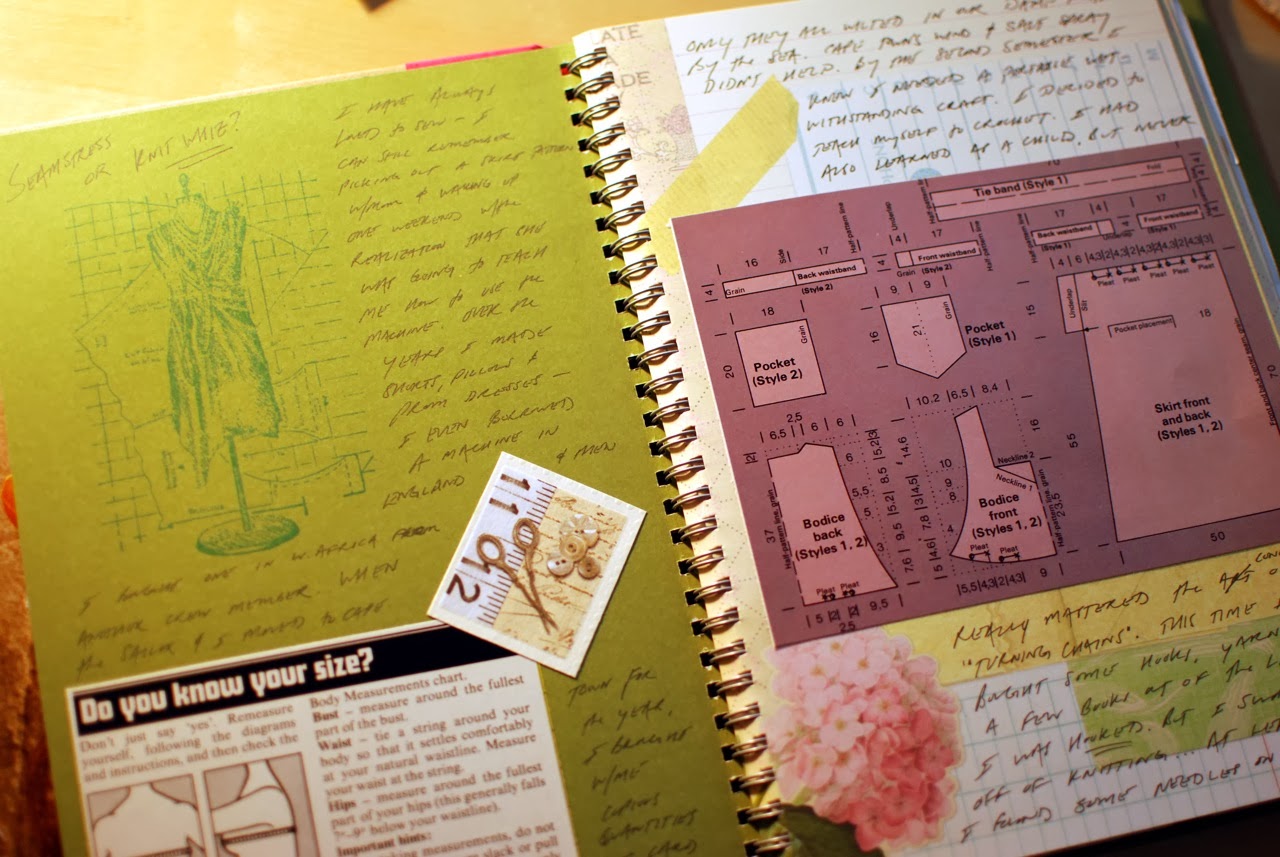 SEAMSTRESS
OR KNIT WHIZ?
I HAVE ALWAYS
LOVED TO SEW - I
CAN STILL REMEMBER
PICKING OUT A SKIRT PATTERN
W/MOM & WAKING UP
ONE WEEKEND W/THE
REALIZATION THAT SHE
WAS GOING TO TEACH
ME HOW TO USE THE
MACHINE. OVER THE
YEARS I MADE
SHORTS, PILLOWS &
PROM DRESSES -
I EVEN BORROWED
A MACHINE IN
ENGLAND & THEN
I BOUGHT ONE IN W. AFRICA FROM
ANOTHER CREW MEMBER WHEN
THE SAILOR & I MOVED TO CAPE
TOWN FOR
THE YEAR,
I BROUGHT
W/ME
COPIOUS
QUANTITIES
CARD
11
12
Do you know your size?
Don't just say 'yes'. Remeasure
yourself, following the diagrams
and instructions, and then check the
Body Measurements chart.
Bust – measure around the fullest
part of the bust.
Waist – tie a string around your
body so that it settles comfortably
at your natural waistline. Measure
your waist at the string.
Hips – measure around the fullest
part of your hips (this generally falls
7"-9" below your waistline).
Important hints:
measurements, do not
slack or pull
ATE
ADE
ONLY THEY ALL WILTED IN OUR DAMP
BY THE SEA. CAPE TOWN'S WIND & SALT SPRAY
DIDN'T HELP. BY THE SECOND SEMESTER I
KNEW I NEEDED A PORTABLE WET
WITHSTANDING CRAFT. I DECIDED TO
TEACH MYSELF TO CROCHET. I HAD
ALSO LEARNED AS A CHILD, BUT NEVER
Tie band (Style 1)
Fold
Half pattern line
16 Side 17 Half pattern line
4 Grain Back waistband
(Style 2)
Underlap 4 17
Grain Front waistband
(Style 2)
Half pattern line
17 4
Back waistband
(Style 1)
Underlap
17
Front waistband
(Style 1)
18
20 Grain
Pocket
(Style 2)
9 9
16 21 Grain
Pocket
(Style 1)
4 6 4,3 2 4,3 2 4,3 2 4,3
Pleat Pleat Pleat Pleat
15 Underlap Slit
Pocket placement 18
Skirt front
and back
(Styles 1, 2)
55 70
50
2,5
6,5 6 6
2 6 5,2 3
37 Half-pattern line, grain
5,5 8,5
Bodice
back
(Styles 1, 2)
3 9,5
Pleat Pleat
5 2 2 9,5
25
10,2 6,5 8,4
14,6 16
10 9 8
Neckline 2
Neckline 1
3 4,5
7,8
Bodice
front
(Styles 1, 2)
Half-pattern line, grain
23,5
7,6 5 4,6 4
Pleat Pleat
5,5 4,3 2 4,3 9
REALLY MATTERED THE
"TURNING CHAINS". THIS TIME I
BOUGHT SOME HOOKS, YARN
A FEW BOOKS OUT OF THE
I WAS HOOKED. BUT I
OFF OF KNITTING... AT
I FOUND SOME NEEDLES ON